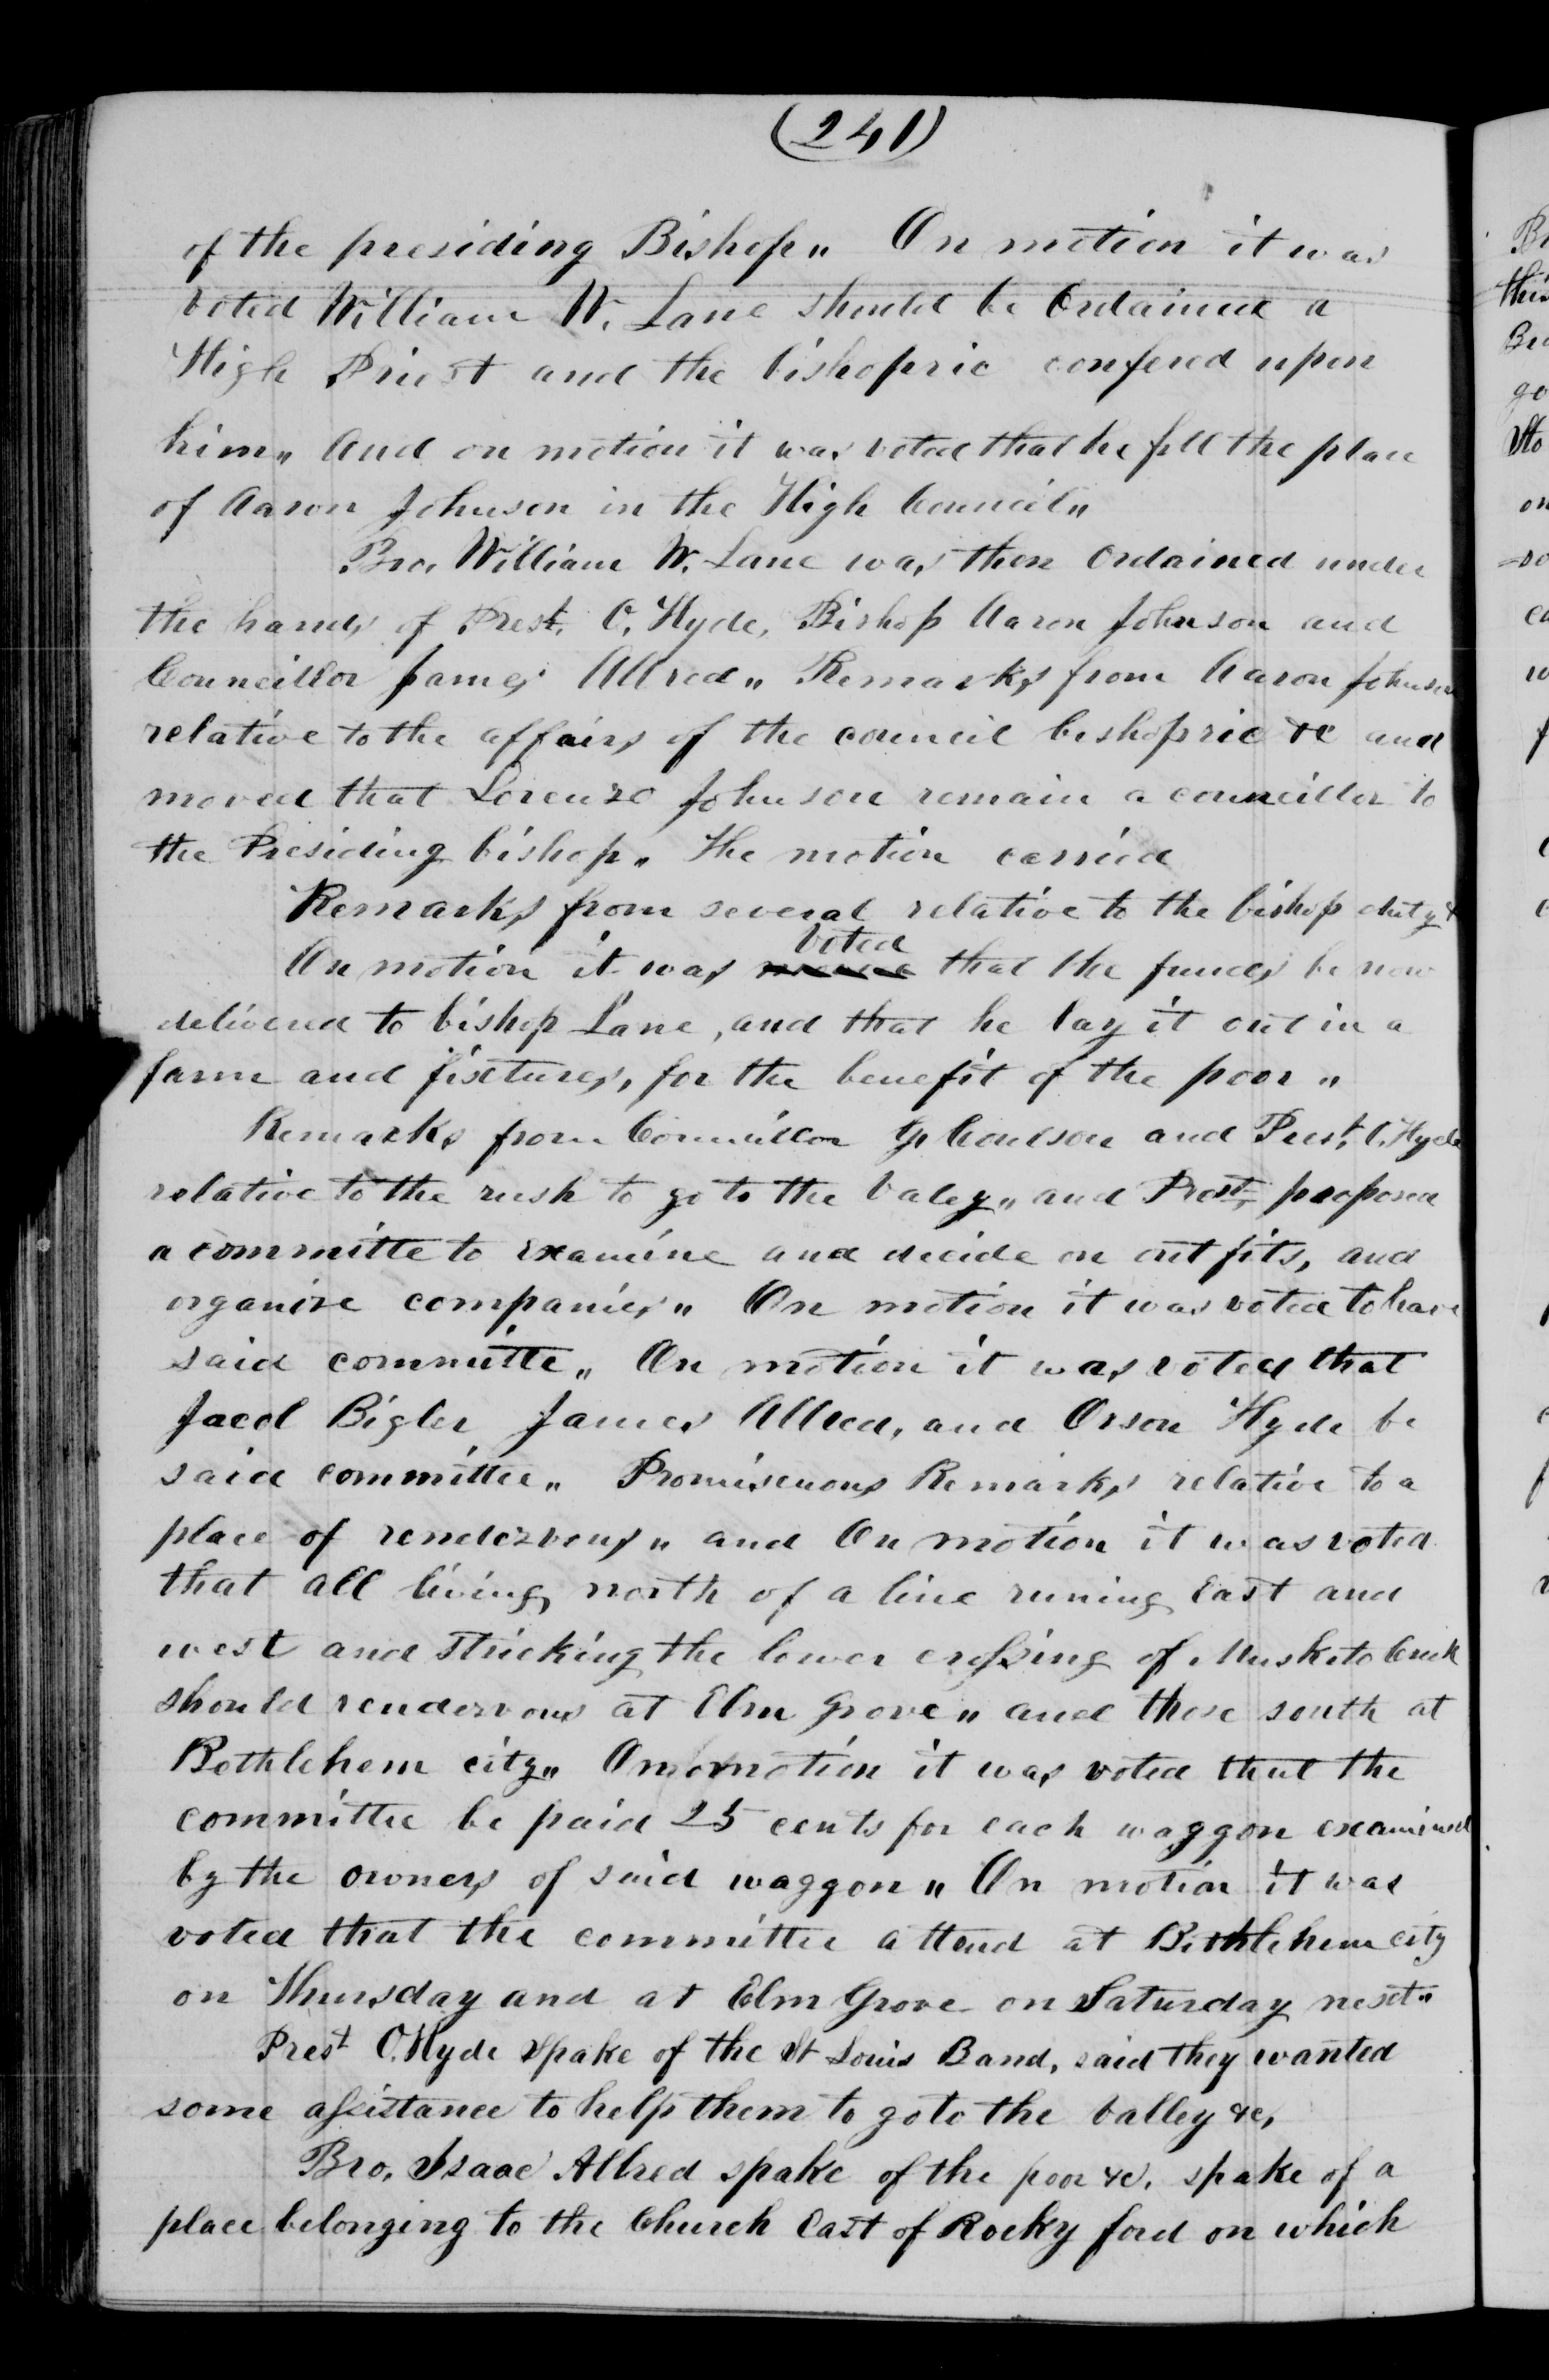 (241)
of the presiding Bishop„ On motion it was
voted William W. Lane should be Ordained a
High Priest and the bishopric confered upon
him„ And on motion it was voted that he fill the place
of Aaron Johnson in the High Council„
Bro, William W. Lane was then Ordained under
the hands of Prest, O, Hyde, Bishop Aaron Johnson and
Councillor James Allred„ Remarks from Aaron Johnson
relative to the affairs of the council bishopric &c and
moved that Lorenzo Johnson remain a councillor to
the Presiding bishop„ The motion carried
Remarks from several relative to the bishop duty &
voted
On motion it was that the funds be now
delivered to bishop Lane, and that he lay it out in a
farm and fixtures, for the benefit of the poor„
Remarks from Councillor G Coulson and Prest, O, Hyde
relative to the rush to go to the valey„ and Prest, proposed
a committe to examine and decide on out fits, and
organize companies„ On motion it was voted to have
said committe„ On motion it was voted that
Jacob Bigler James Allred, and Orson Hyde be
said committee„ Promiscuous Remarks relative to a
place of rendezvous„ and On motion it was voted
that all living north of a line runing East and
west and stricking the lower crossing of Musketo Creek
should rendezvous at Elm Grove„ and those south at
Bethlehem city„ On motion it was voted that the
committee be paid 25 cents for each waggon examined
by the owners of said waggon„ On motion it was
voted that the committee attend at Bethlehem city
on Thursday and at Elm Grove on Saturday next„
Prest O. Hyde spake of the St Louis Band, said they wanted
some assistance to help them to go to the valley &c,
Bro, Isaac Allred spake of the poor &c. spake of a
place belonging to the Church East of Rocky ford on which